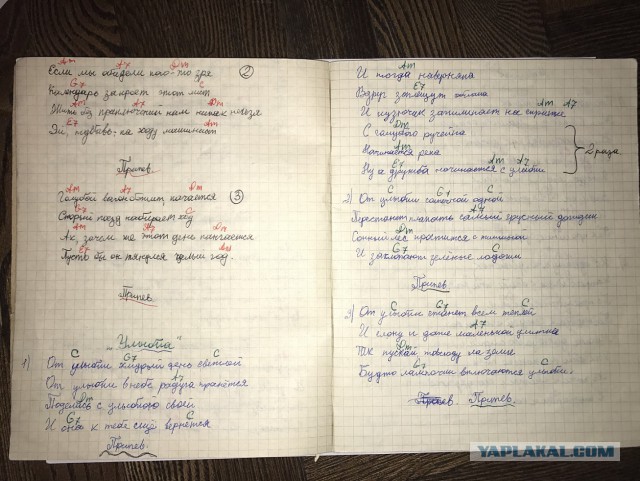 Am A7 Dm
Если мы обидели кого-то зря
②
G7 C
Календарь закроет этот лист
Am A7 Dm
Жить без приключений нам никак нельзя
E7 Am
Эй, прибавь-ка ходу машинист
Припев
Am A7 Dm
Голубой вагон бежит качается
③
G7 C
Скорый поезд набирает ход
Am A7 Dm
Ах, зачем же этот день кончается
E7 Am
Пусть бы он тянулся целый год.
Припев
"Улыбка"
C G7 C
1) От улыбки хмурый день светлей
A7
От улыбки в небе радуга проснётся
Dm
Поделись с улыбкою своей
G7 C
И она к тебе ещё вернётся
Припев.
Am
И тогда наверняка
E7
Вдруг запляшут облака
Am A7
И кузнечик запиликает на скрипке
Dm
С голубого ручейка
Am
Начинается река
E7 Am A7
Ну а дружба начинается с улыбки
2 раза
C G7 C
2) От улыбки солнечной одной
A7
Перестанет плакать самый грустный дождик
Dm
Сонный лес простится с тишиной
G7 C
И захлопает зелёные ладоши
Припев
C G7 C
3) От улыбки станет всем теплей
A7
И слону и даже маленькой улитке
Dm
Так пускай повсюду на земле
G7 C
Будто лампочки включаются улыбки.
Припев.
YAPLAKAL.COM